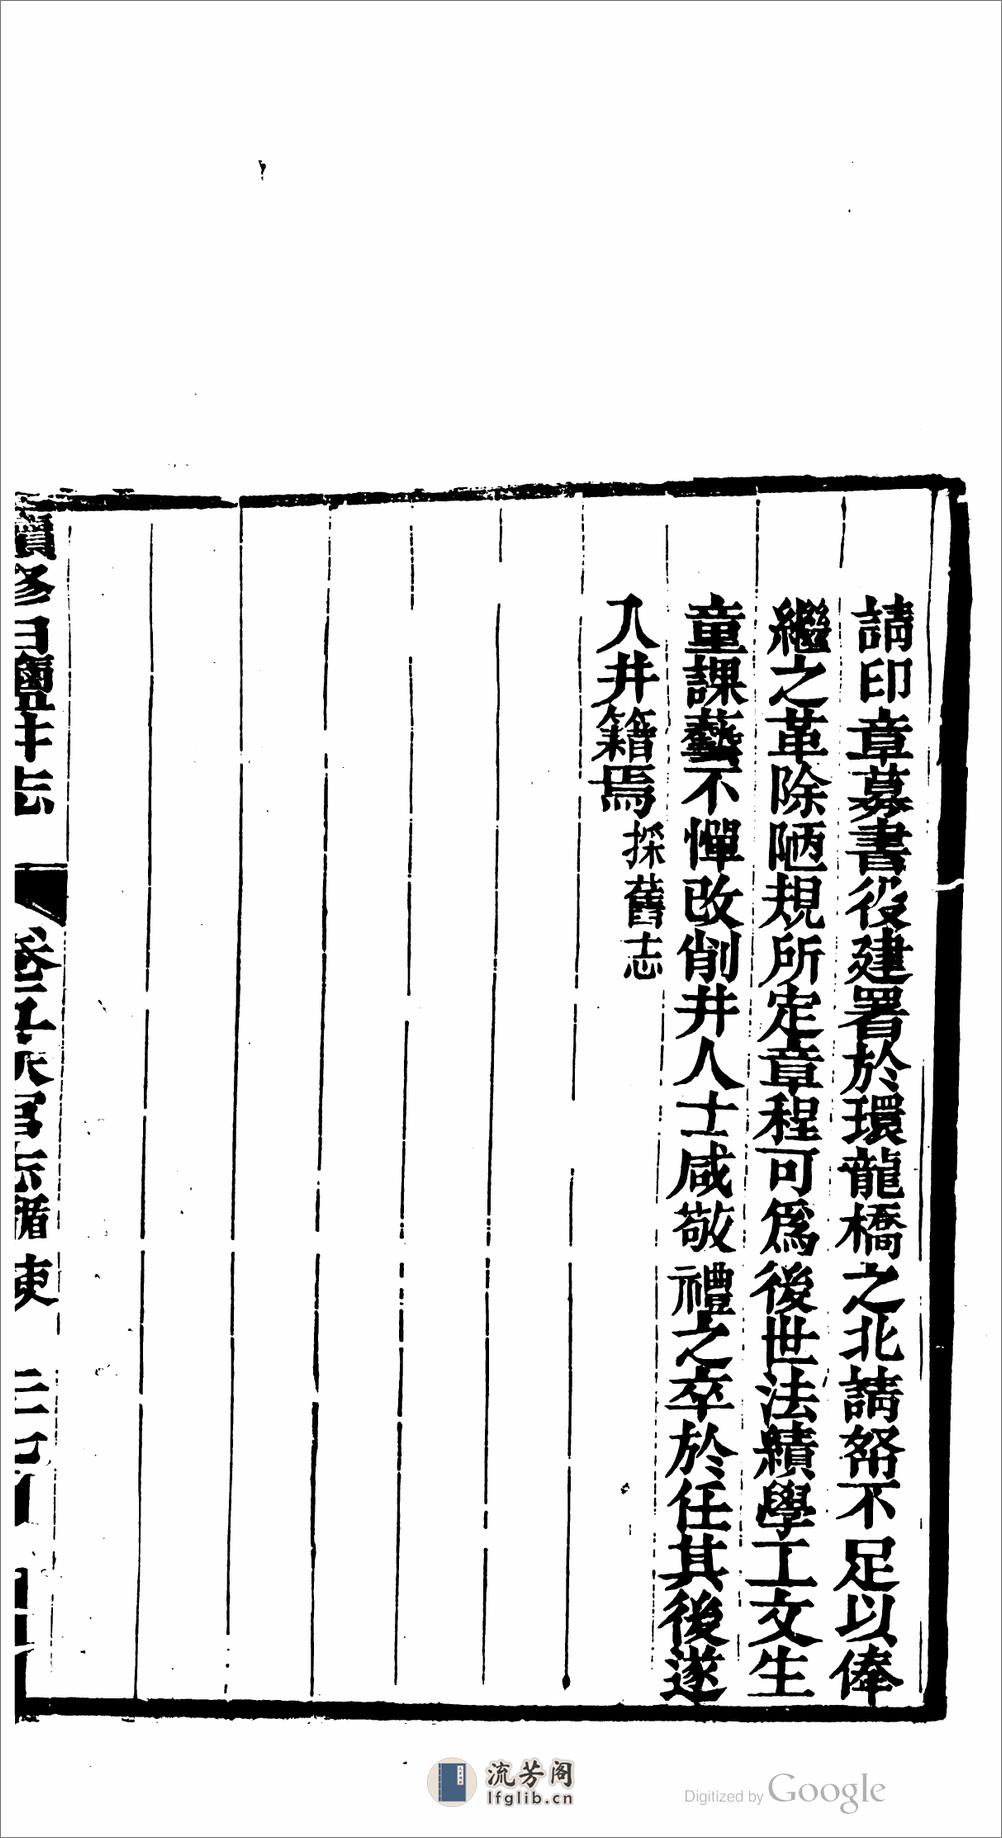 請印章募書役建署於環龍橋之北請帑不足以俸
繼之革除陋規所定章程可爲後世法績學工文生
童課藝不憚改削井人士咸敬禮之卒於任其後遂
入井籍焉採舊志
續修白鹽井志 卷之五 官志循吏 三七
流芳阁
lfglib.cn
Digitized by Google